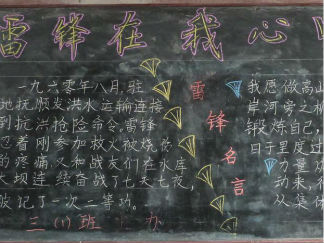 雷锋在我心
一九六零年八月,驻
地抚顺发洪水运输连接
到抗洪抢险命令。雷锋
忍着刚参加救火被烧伤
的疼痛又和战友们在水库
大坝连续奋战了七天七夜,
被记了一次二等功。
三(1)班
雷锋名言
我愿做高山
岸河旁之
锻炼自己,
日子里度过
力量
动来,
从集体